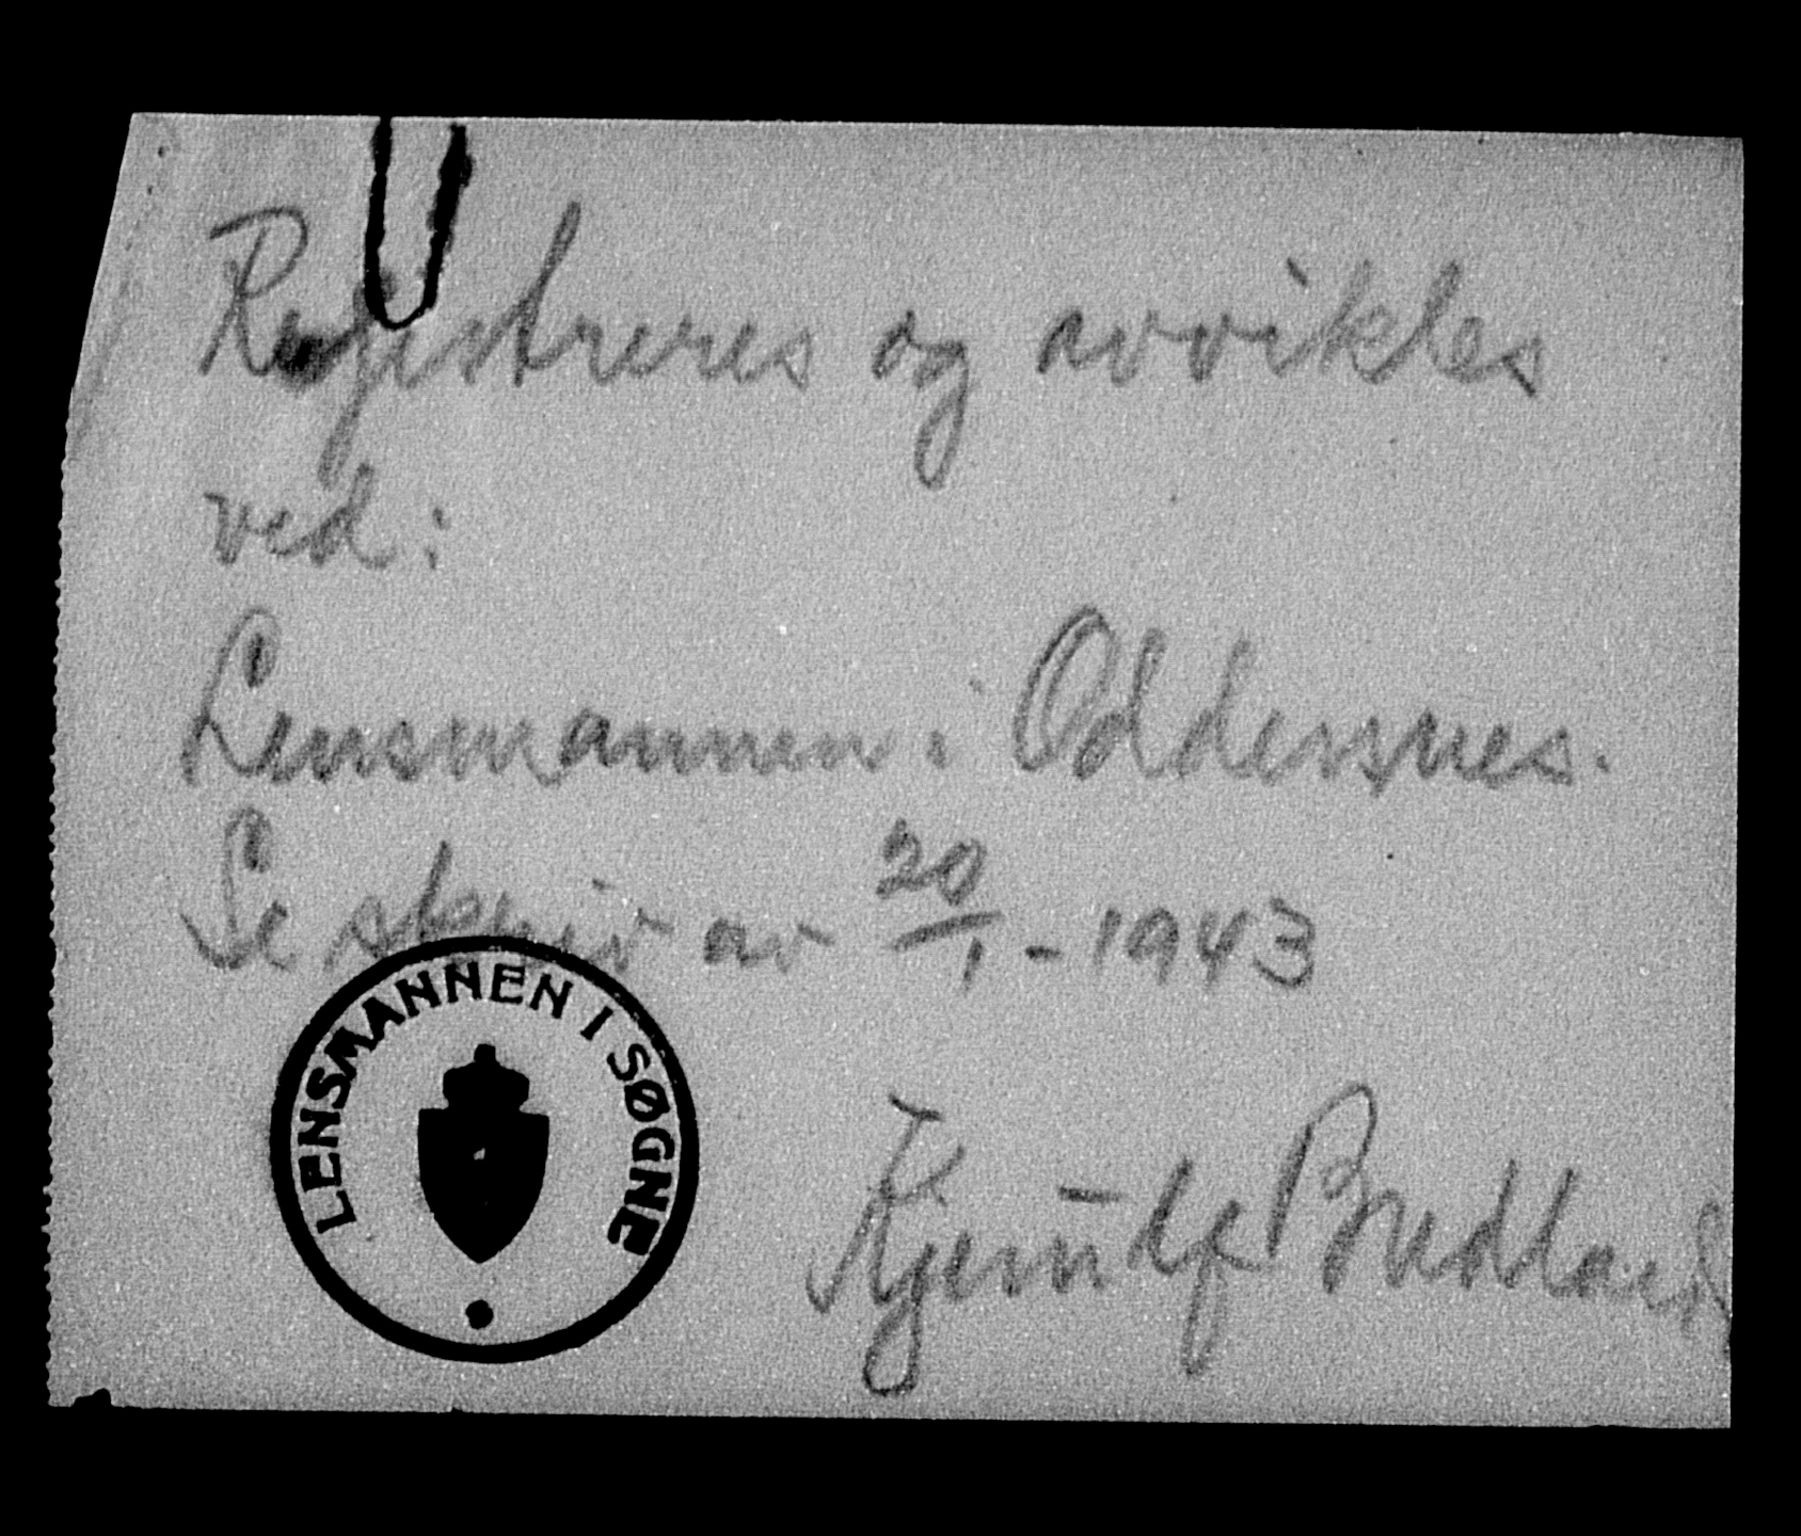 Registreres og avvikles
ved:
Lensmannen i Oddernes.
Se skriv av 20/1-1943
LENSMANNEN I SØGNE